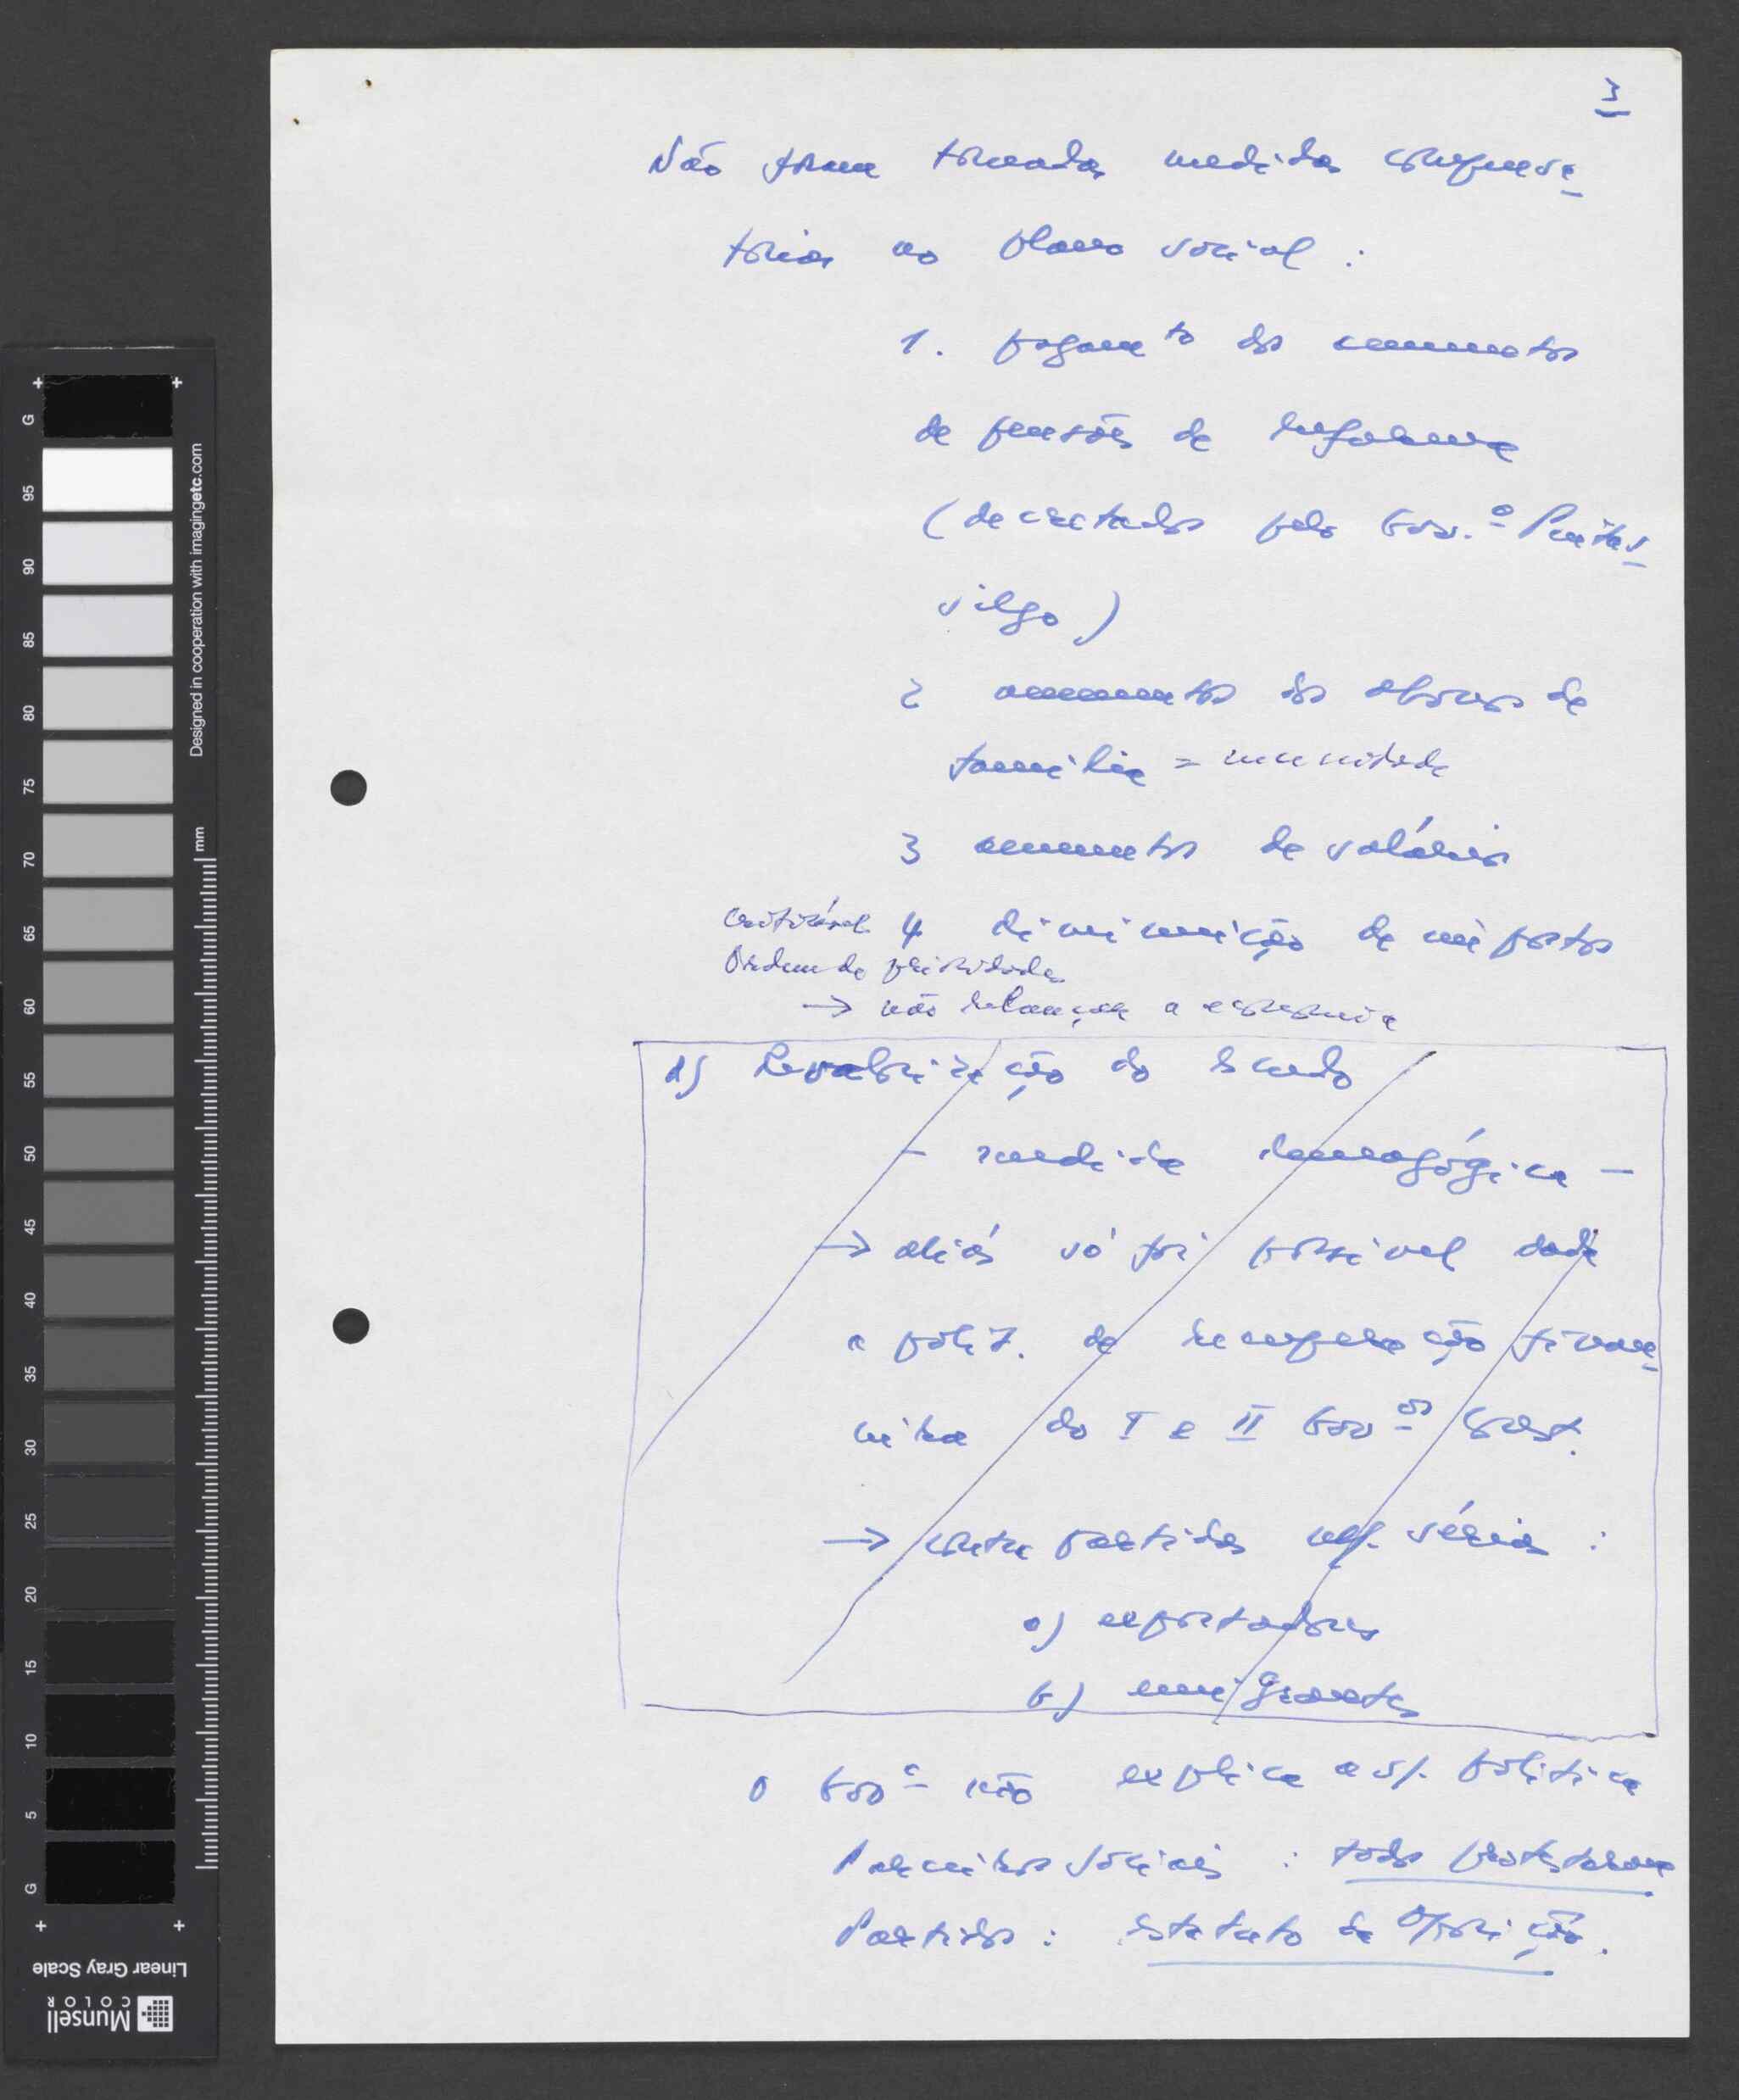 3
Não foram tomadas medidas compensa
tórias no plano social :
1. pagamto dos aumentos
de pensões de reforma
(decretados pelo Gov.o Pintas
silgo)
2 aumentos dos abonos de
família =
3 aumentos de salários
criticável 4 diminuição de impostos
Ordem de prioridades
→ não relançar a economia
d) Revalorização do Escudo
- medida demagógica -
→ aliás só foi possível dada
a polít. de recuperação finan
ceira do I e II Govos Const.
→ contra partidas mt. sérias :
a) exportadores
b) emigrantes
O Govo não explica a s/. política
Parceiros Sociais : todos protestaram
Partidos : Estatuto da Oposição.
G
95
90
85
80
75
70
65
60
55
50
45
40
35
30
25
20
15
10
5
G
Designed in cooperation with imagingetc.com
mm
Linear Gray Scale
Munsell
COLOR